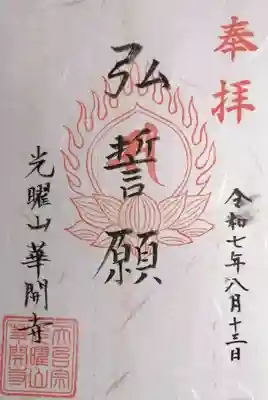 奉拝
令和七年八月十三日
弘誓願
光曜山華開寺
天台宗
光曜山
華開寺